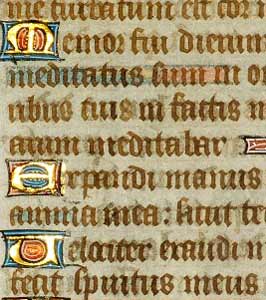 me turbatum est cor m
Memor fui dierum
meditatus sum in o
nibus tuis in factis m
arum meditabar
Expandi manus
anima mea: sicut ter
Velociter exaudi m
fecit spiritus meus